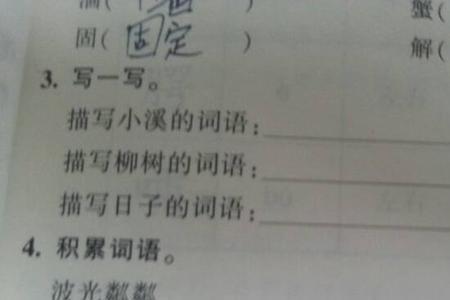 蟹(
固( 固定 ) 解(
3. 写一写。
描写小溪的词语:
描写柳树的词语:
描写日子的词语:
4. 积累词语。
波光粼粼